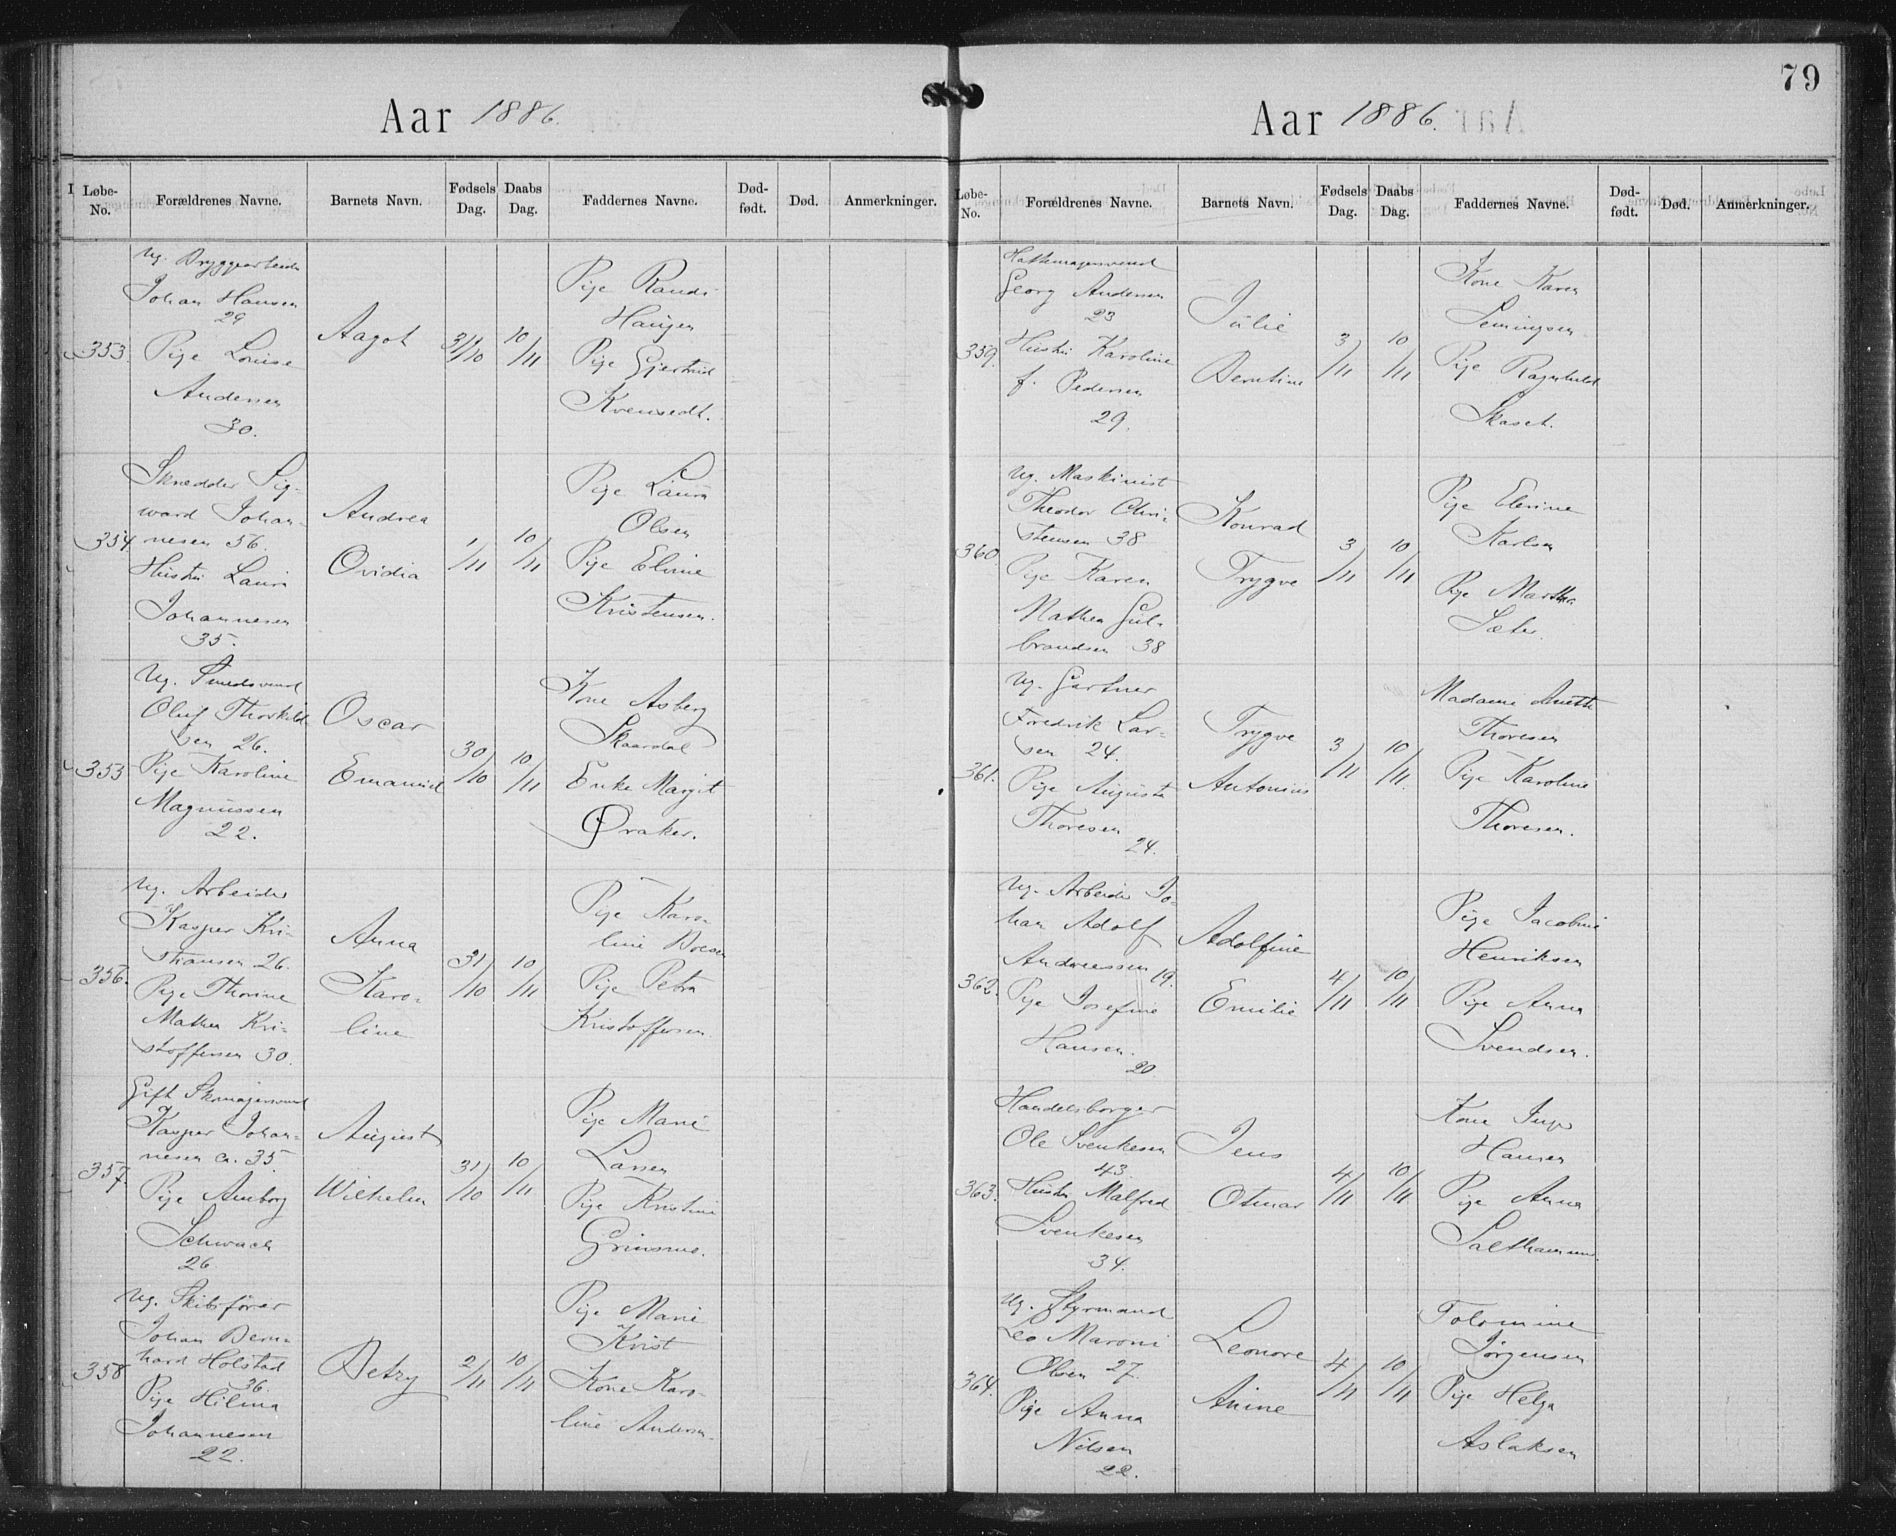 79
Aar 1886.
Løbe-No. Forældrenes Navne. Barnets Navn. Fødsels Dag. Daabs Dag. Faddernes Navne. Død-født. Død. Anmerkninger.
353.
Ug. Bryggearbeider
Johan Hansen
29
Pige Louise
Andersen
30.
Aagot
31/10
10/11
Pige Randi
Haugen
Pige Gjertrud
354
Skrædder Sig-
ward Johan-
nesen 56.
Hustru Laura
Johannesen
35.
Andrea
Ovidia
1/11
10/11
Pige Laura
Olsen
Pige Eline
Kristensen.
353
Ug. Smedsvend
Oluf Thorkild
sen 26.
Pige Karoline
Magnussen
22.
Oscar
Emanuel
30/10
10/11
Kone Asberg
Skaardal
Enke Margit
Øraker.
356.
Ug. Arbeider
Kasper Kri-
stiansen 26.
Pige Thorine
Mathea Kri-
stoffersen 30.
Anna
Karo-
line
31/10
10/11
Pige Karo-
line
Pige Petra
Kristoffersen.
357.
Gift Skomagersvend
Kasper Johan-
nesen ca. 35.
Pige Amborg
Schwach
26
August
Wilhelm
31/10
10/11
Pige Marie
Larsen
Pige Kristine
Grinsrue.
358
Ug. Skibsfører
Johan Bern-
hard Holstad
36.
Pige Hilma
Johannesen
22.
Betzy
2/11
10/11
Pige Marie
Krist
Kone Karo-
line Andersen.
Aar 1886.
Løbe-No. Forældrenes Navne. Barnets Navn. Fødsels Dag. Daabs Dag. Faddernes Navne. Død-født. Død. Anmerkninger.
359.
Hattemagersvend
Georg Andersen
23
Hustru Karoline
f. Pedersen
29.
Julie
Berntine
3/11
10/11
Kone Karen
Lemingsen
Pige Ragnhild
Skaset.
360.
Ug. Maskinist
Theodor Chri-
stensen 38
Pige Karen
Mathea Gul-
brandsen 38
Konrad
Trygve
3/11
10/11
Pige Elevine
Karlsen
Pige Martha
Sæter.
361.
Ug. Gartner
Fredrik Lar-
sen 24.
Pige Augusta
Thoresen
24.
Trygve
Antonius
3/11
10/11.
Madame Anette
Thoresen
Pige Karoline
Thoresen.
362.
Ug. Arbeider Jo-
han Adolf
Andreassen 19.
Pige Josefine
Hansen.
20
Adolfine
Emilie
4/11
10/11
Pige Jacobine
Henriksen
Pige Anna
Svendsen.
363.
Handelsborger
Ole Svenkesen
43
Hustru Malfred
Svenkesen
34.
Jens
Otmar
4/11
10/11
Kone Inga
Hansen
Pige Anna
364.
Ug. Styrmand
Leo Maroni
Olsen 27.
Pige Anna
Nilsen
22.
Leonore
Anine
4/11
10/11
Tolomine
Jørgensen
Pige Helga
Aslaksen